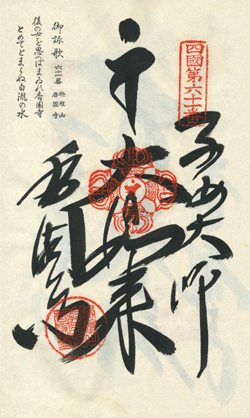 四國第六十一番
子安大師
本尊
大日如来
香園寺
御詠歌 六十一番 栴檀山 香園寺
後の世を思へばまゐれ香園寺
とめてとまらぬ白瀧の水